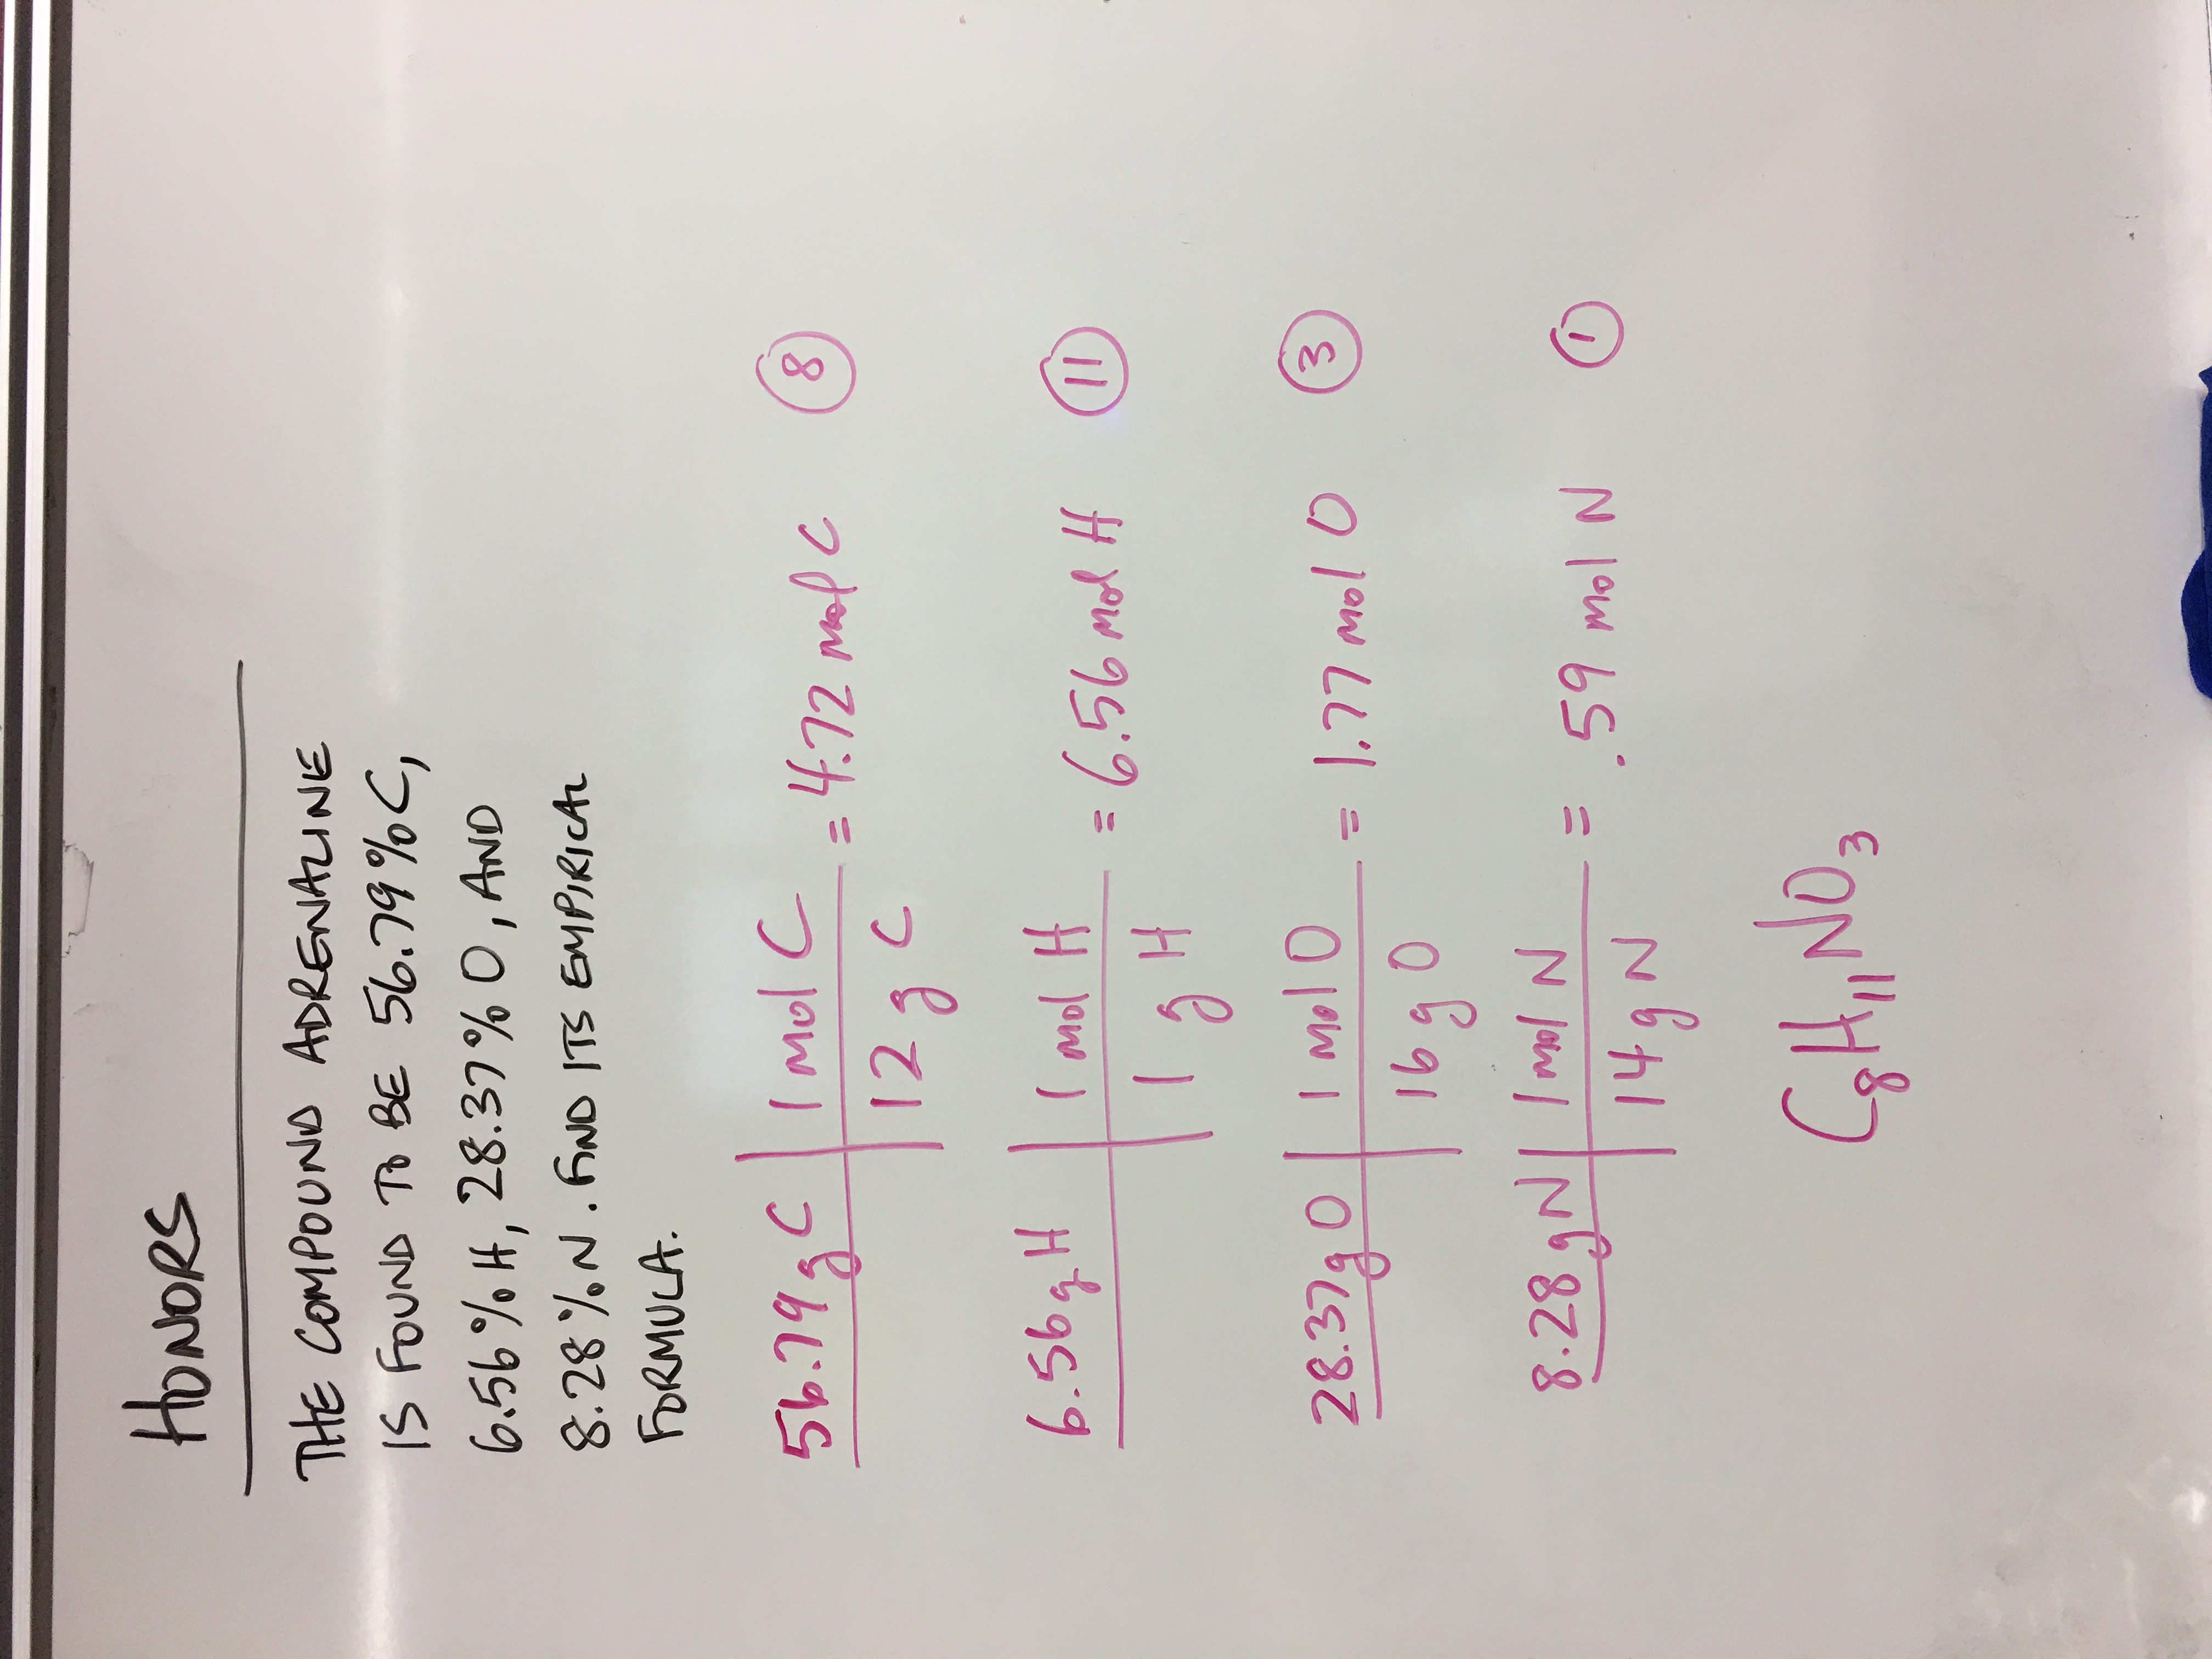 HONORS
THE COMPOUND ADRENALINE
IS FOUND TO BE 56.79% C,
6.56% H, 28.37% O, AND
8.28% N. FIND ITS EMPIRICAL
FORMULA.
56.79 g C | 1 mol C = 4.72 mol C 8
12 g C
6.56 g H | 1 mol H = 6.56 mol H 11
1 g H
28.37 g O | 1 mol O = 1.77 mol O 3
16 g O
8.28 g N | 1 mol N = .59 mol N 1
14 g N
C₈H₁₁NO₃